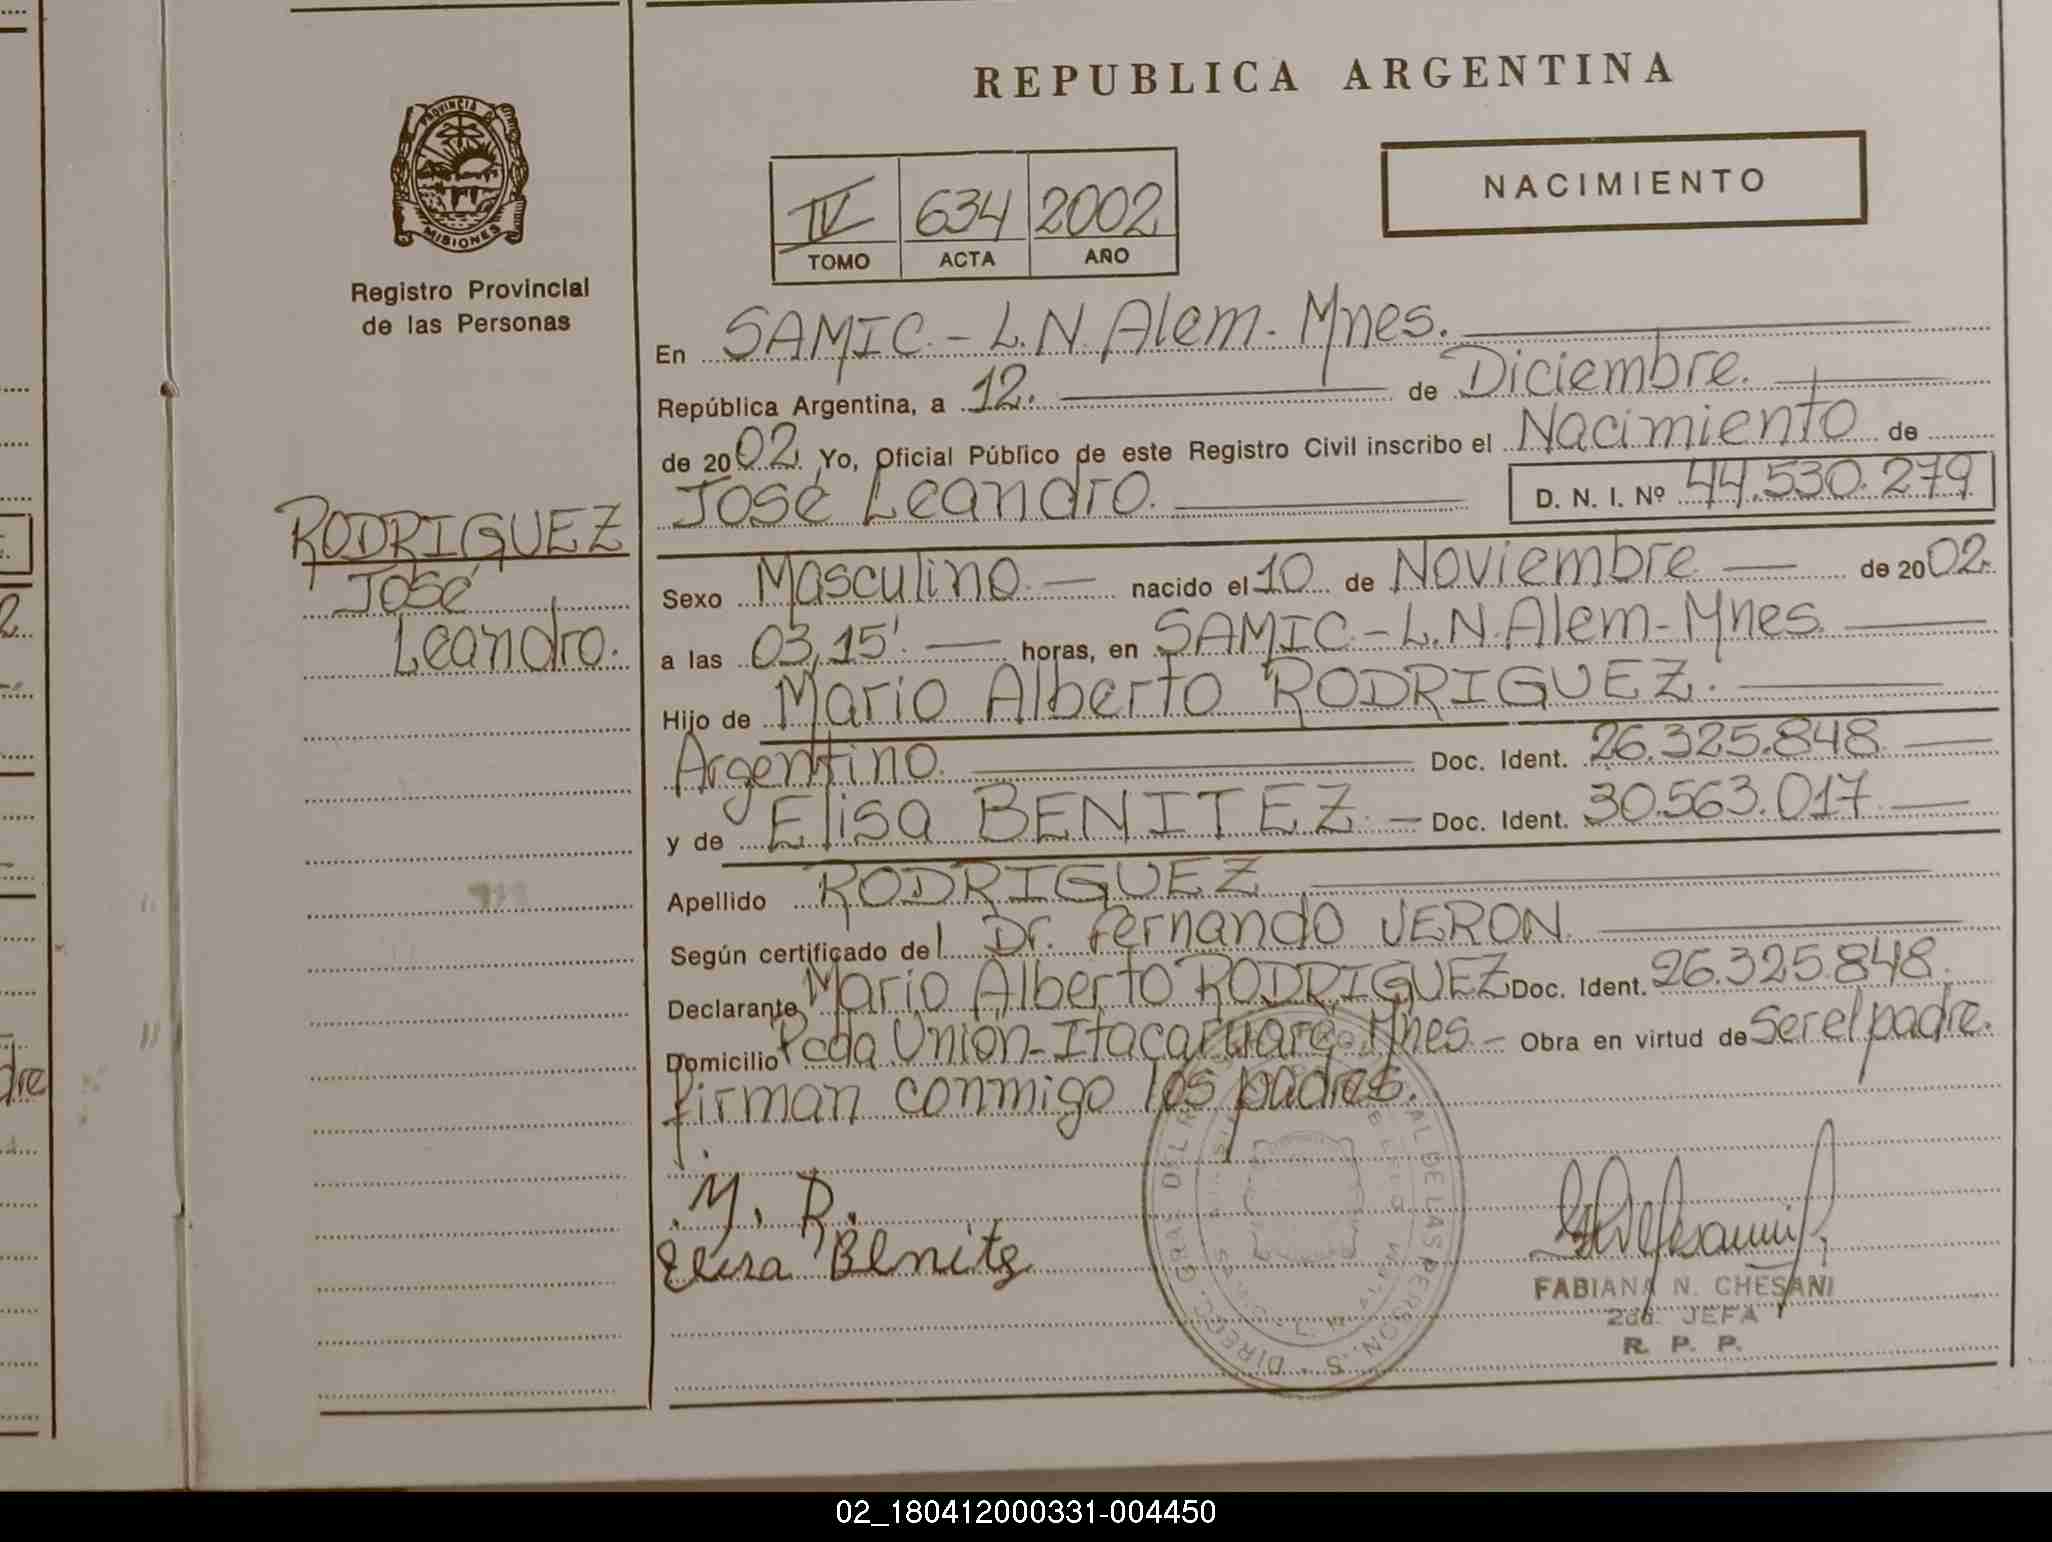 REPUBLICA ARGENTINA
PROVINCIA DE
MISIONES
Registro Provincial
de las Personas
IV 634 2002
TOMO ACTA AÑO
NACIMIENTO
En SAMIC.-L.N.Alem-Mnes.
República Argentina, a 12. de Diciembre.
de 2002. Yo, Oficial Público de este Registro Civil inscribo el Nacimiento de
José Leandro. D. N. I. Nº 44.530.279
RODRIGUEZ
José
Leandro.
Sexo Masculino nacido el 10 de Noviembre de 2002.
a las 03,15'. horas, en SAMIC-L.N.Alem-Mnes
Hijo de Mario Alberto RODRIGUEZ.
Argentino. Doc. Ident. 26.325.848
y de Elisa BENITEZ.- Doc. Ident. 30.563.017
Apellido RODRIGUEZ
Según certificado del Dr. Fernando VERON.
Declarante Mario Alberto RODRIGUEZ Doc. Ident. 26.325.848.
Domicilio Pcda Unión-Itacaruaré, Mnes.- Obra en virtud de Ser el padre.
firman conmigo los padres.
M. R.
Elisa Benitz
FABIANA N. CHESANI
2da. JEFA
R. P. P.
02_180412000331-004450